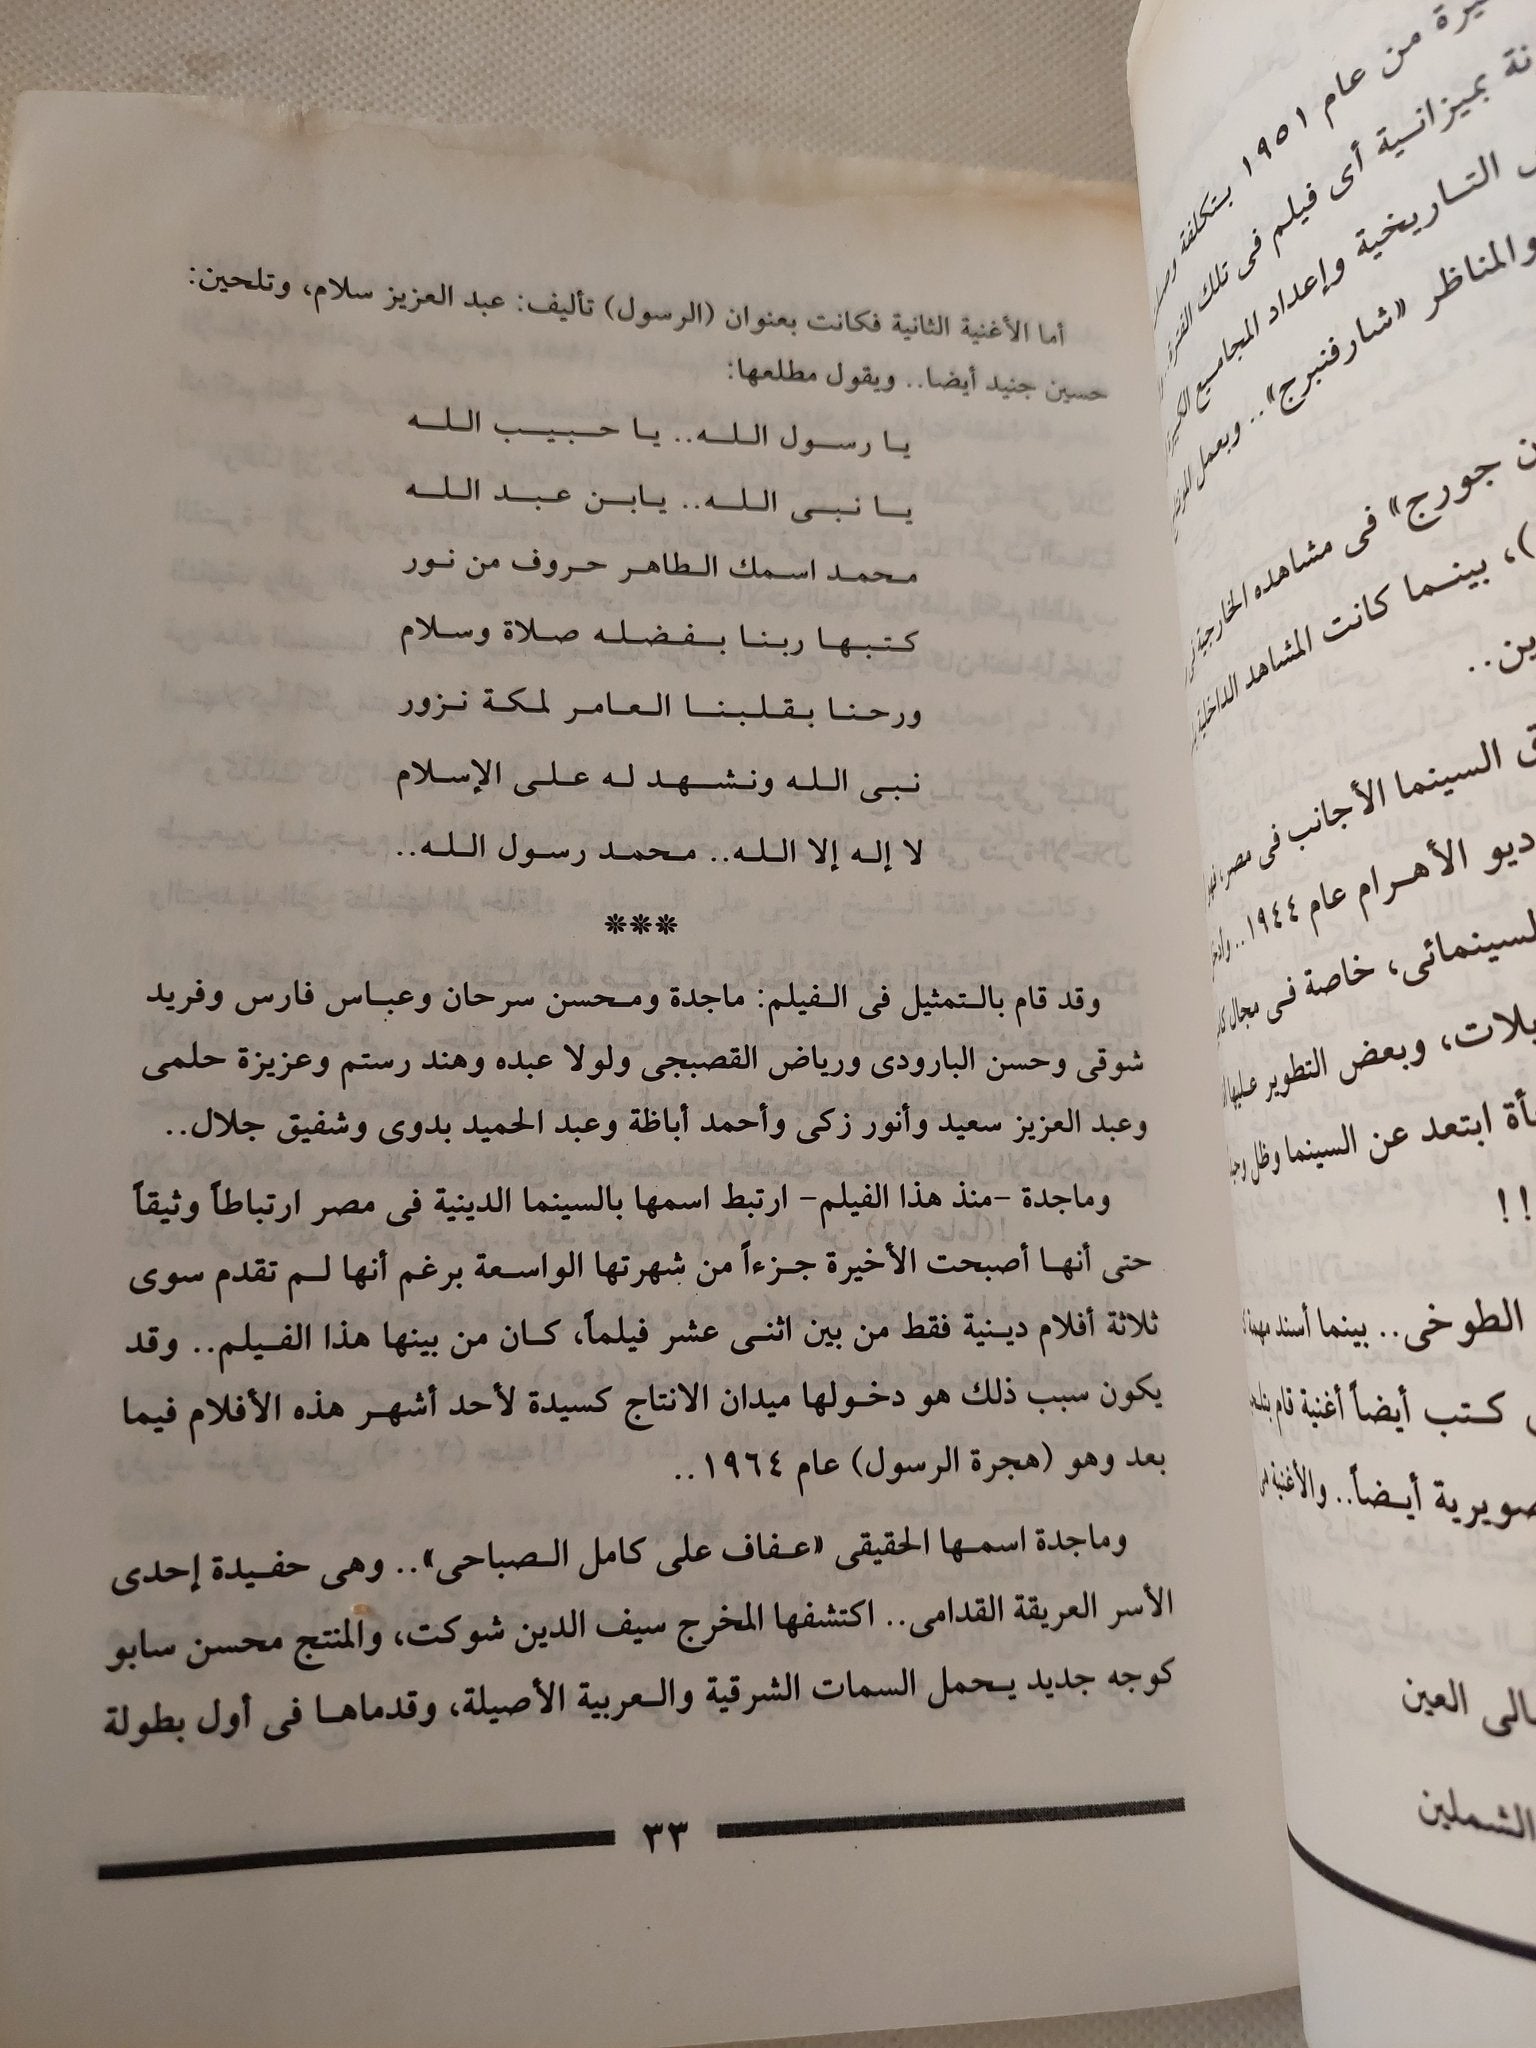 يرة من عام ١٩٥١ بتكلفة
نة بميزانسية أى فيلم فى تلك الفترة
التاريخية وإعداد المجاميع
والمناظر «شارفنبرج».. وبعمل
ن جورج» فى مشاهده الخارجية
)، بينما كانت المشاهد الداخلية
ين..
ق السينما الأجانب فى مصر،
ديو الأهرام عام ١٩٤٤..
لسينمائى، خاصة فى مجال
يلات، وبعض التطوير عليها
بأة ابتعد عن السينما وظل
!!
الطوخى.. بينما أسند مهمة
كتب أيضاً أغنية قام
صويرية أيضاً.. والأغنية
ـالى العين
الشملين
أما الأغنية الثانية فكانت بعنوان (الرسول) تأليف: عبد العزيز سلام، وتلحين:
حسين جنيد أيضا.. ويقول مطلعها:
يا رسول الله.. يا حبيب الله
يا نبى الله.. يابن عبد الله
محمد اسمك الطاهر حروف من نور
كتبها ربنا بفضله صلاة وسلام
ورحنا بقلبنا العامر لمكة نزور
نبى الله ونشهد له على الإسلام
لا إله إلا الله.. محمد رسول الله..
***
وقد قام بالتمثيل فى الفيلم: ماجدة ومحسن سرحان وعباس فارس وفريد
شوقى وحسن البارودى ورياض القصبجى ولولا عبده وهند رستم وعزيزة حلمى
وعبد العزيز سعيد وأنور زكى وأحمد أباظة وعبد الحميد بدوى وشفيق جلال..
وماجدة -منذ هذا الفيلم- ارتبط اسمها بالسينما الدينية فى مصر ارتباطاً وثيقاً
حتى أنها أصبحت الأخيرة جزءاً من شهرتها الواسعة برغم أنها لم تقدم سوى
ثلاثة أفلام دينية فقط من بين اثنى عشر فيلماً، كان من بينها هذا الفيلم.. وقد
يكون سبب ذلك هو دخولها ميدان الانتاج كسيدة لأحد أشهر هذه الأفلام فيما
بعد وهو (هجرة الرسول) عام ١٩٦٤..
وماجدة اسمها الحقيقى «عفاف على كامل الصباحى».. وهى حفيدة إحدى
الأسر العريقة القدامى.. اكتشفها المخرج سيف الدين شوكت، والمنتج محسن سابو
كوجه جديد يحمل السمات الشرقية والعربية الأصيلة، وقدماها فى أول بطولة
٣٣